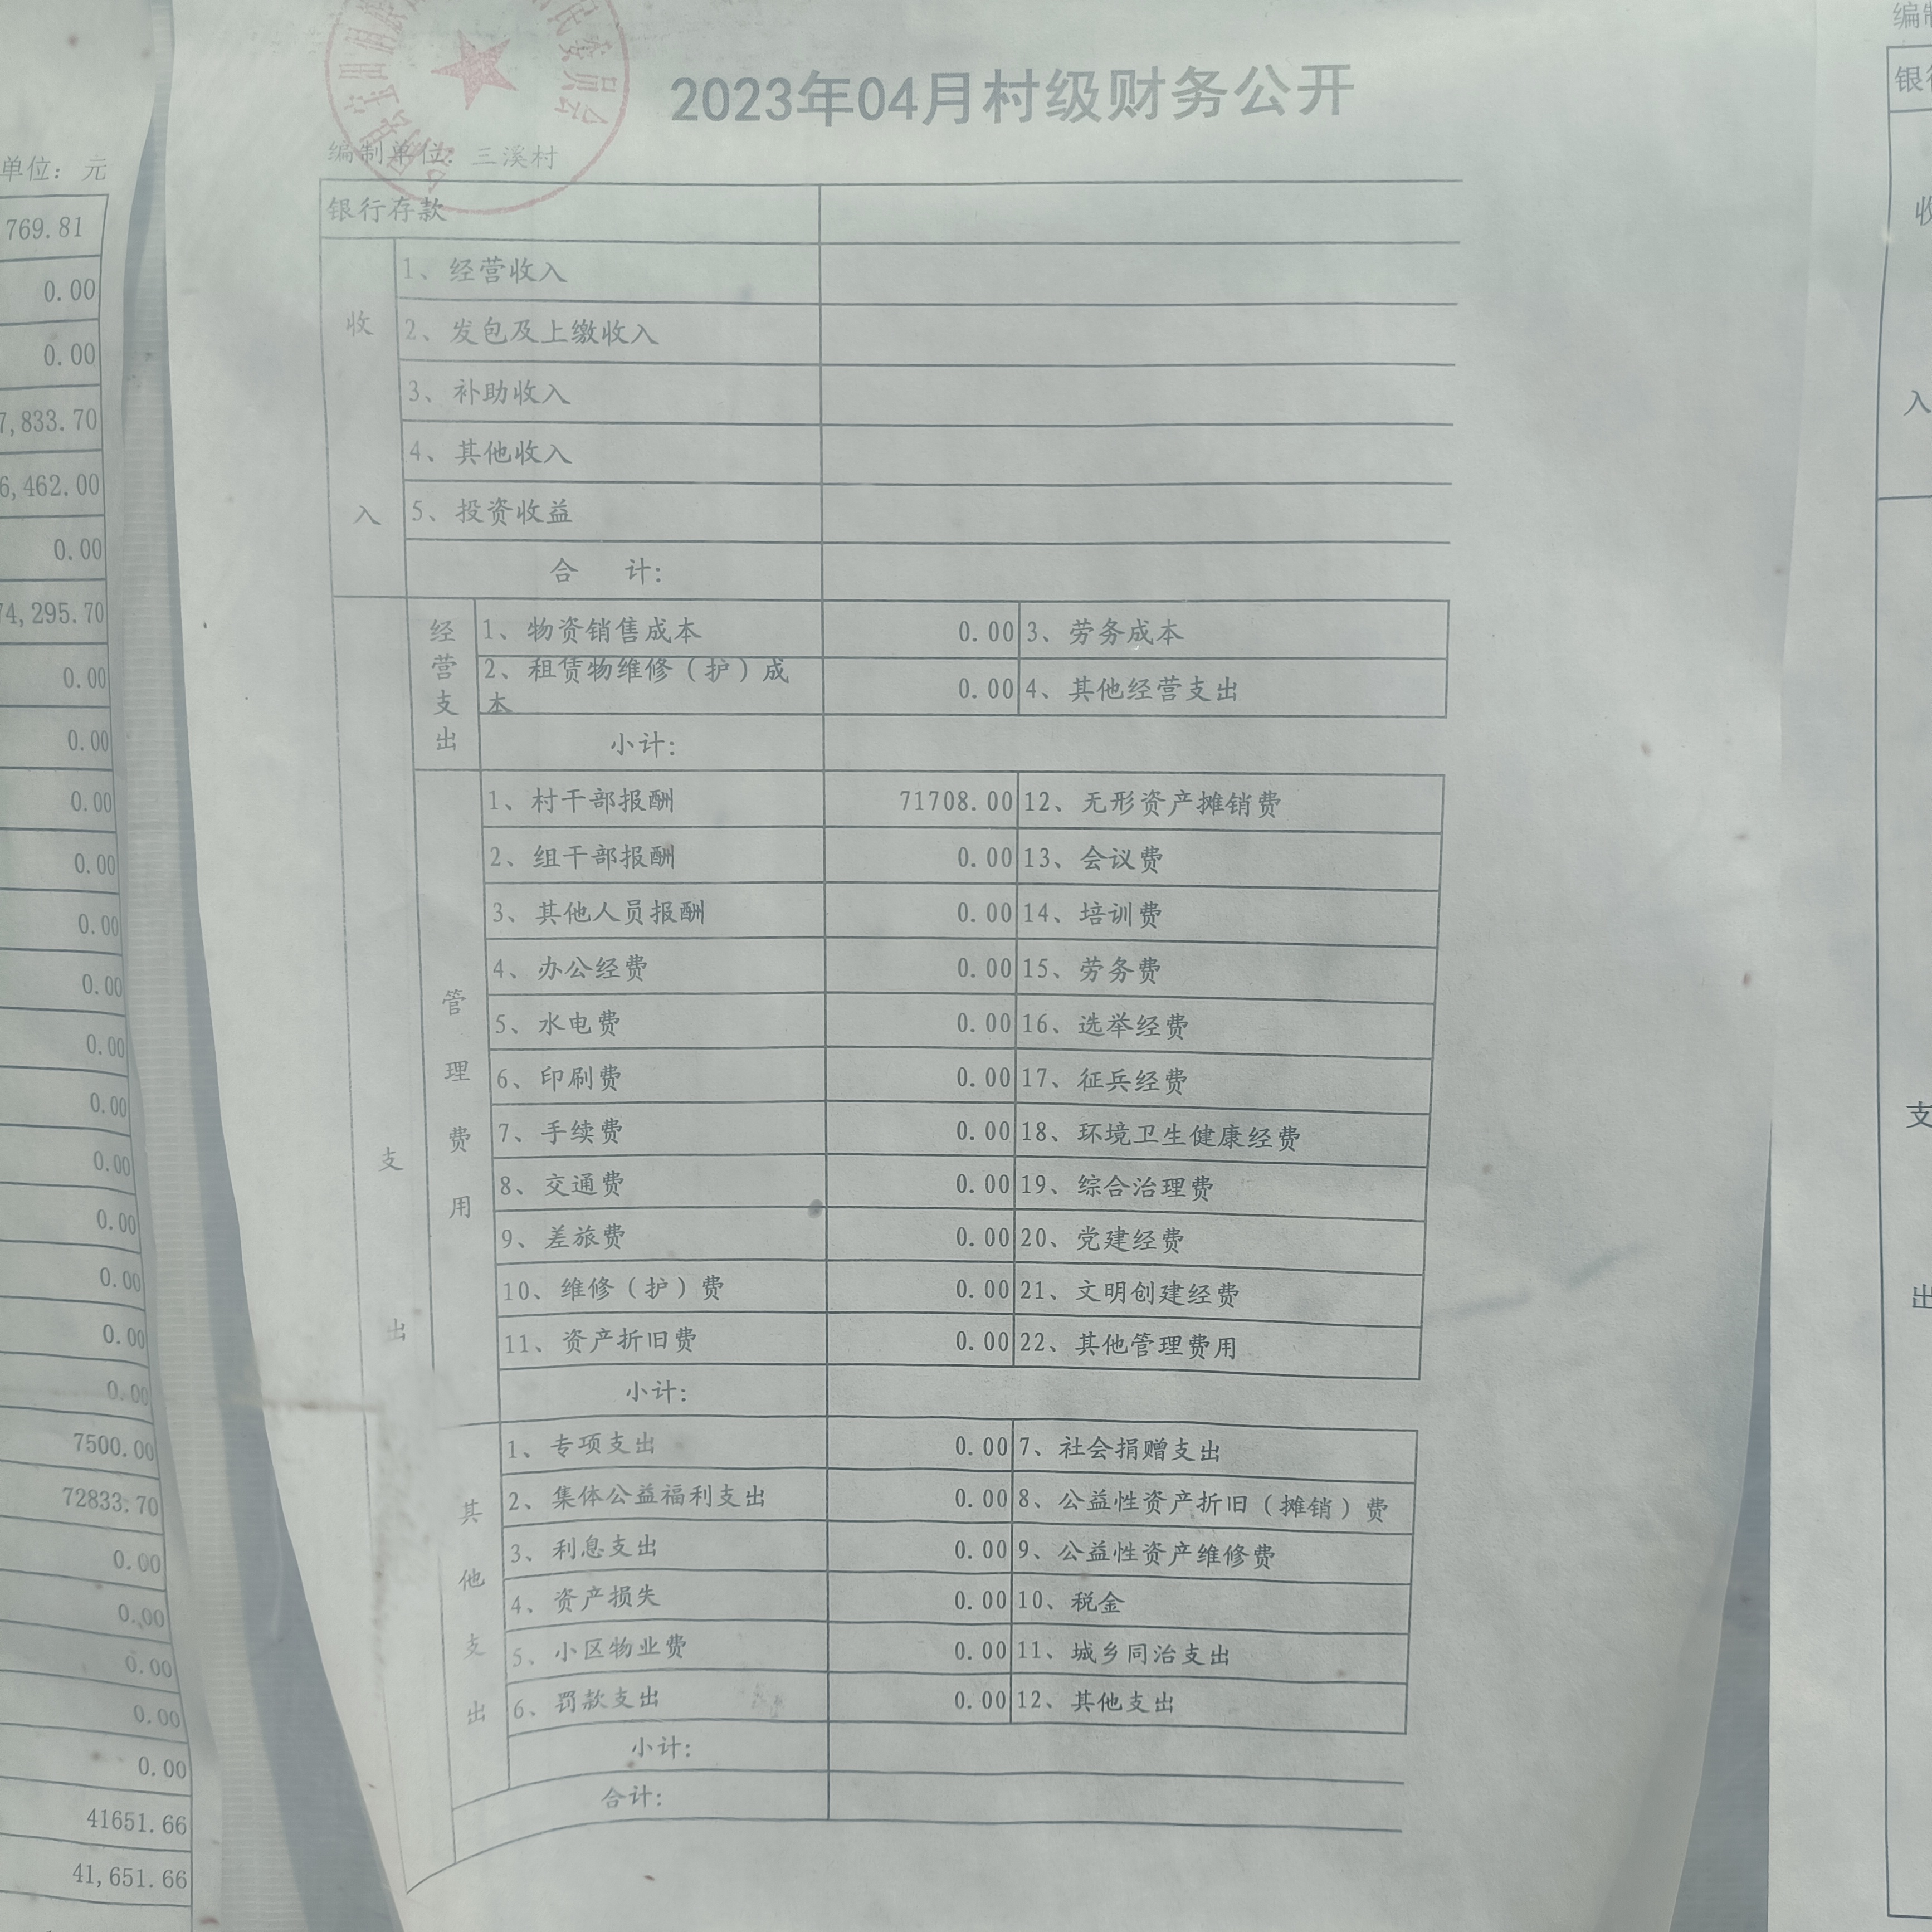 单位：元
769.81
0.00
0.00
7,833.70
6,462.00
0.00
74,295.70
0.00
0.00
0.00
0.00
0.00
0.00
0.00
0.00
0.00
0.00
0.00
0.00
0.00
7500.00
72833.70
0.00
0.00
0.00
0.00
0.00
41651.66
41,651.66
民委员会
2023年04月村级财务公开
编制单位：三溪村
银行存款
收入
1、经营收入
2、发包及上缴收入
3、补助收入
4、其他收入
5、投资收益
合 计：
支出
经营支出
1、物资销售成本 0.00 3、劳务成本
2、租赁物维修（护）成本 0.00 4、其他经营支出
小计：
管理费用
1、村干部报酬 71708.00 12、无形资产摊销费
2、组干部报酬 0.00 13、会议费
3、其他人员报酬 0.00 14、培训费
4、办公经费 0.00 15、劳务费
5、水电费 0.00 16、选举经费
6、印刷费 0.00 17、征兵经费
7、手续费 0.00 18、环境卫生健康经费
8、交通费 0.00 19、综合治理费
9、差旅费 0.00 20、党建经费
10、维修（护）费 0.00 21、文明创建经费
11、资产折旧费 0.00 22、其他管理费用
小计：
其他支出
1、专项支出 0.00 7、社会捐赠支出
2、集体公益福利支出 0.00 8、公益性资产折旧（摊销）费
3、利息支出 0.00 9、公益性资产维修费
4、资产损失 0.00 10、税金
5、小区物业费 0.00 11、城乡同治支出
6、罚款支出 0.00 12、其他支出
小计：
合计：
编制
银行
收
入
支
出